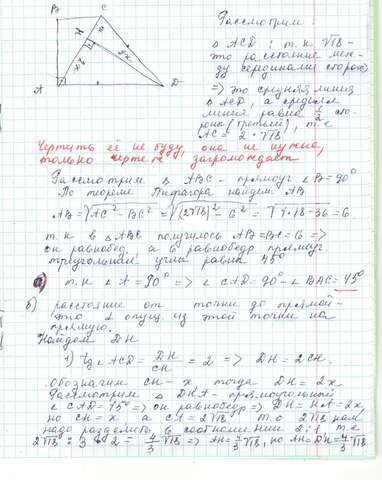 B C
K
A D
Рассмотрим:
Δ ACD: т.к √18 -
это расстояние меж-
ду серединами сторон,
=> то средняя линия
Δ ACD, а средняя
линия равна 1/2 сто-
роны (третьей), т.е
AC = 2·√18
Чертить её не буду, она не нужна,
только чертёж загромождает
Рассмотрим Δ ABC - прямоуг ∠B = 90°
По теореме Пифагора найдем AB
AB = √AC² - BC² = √(2√18)² - 6² = √4·18-36 = 6
т.к в Δ ABC получилось AB=BC=6 =>
он равнобед, а в равнобедр прямоуг
треугольнике углы равны 45°
а) т.к ∠A = 90° => ∠CAD = 90° - ∠BAC = 45°
б) расстояние от точки до прямой -
это ⊥ опущ из этой точки на
прямую.
Найдем DH
1) tg ∠ACD = DH/CH = 2 => DH = 2CH.
обозначим CH - x тогда DH = 2x
Рассмотрим Δ DHA - прямоугольный
∠CAD = 45° => он равнобедр => DH = HA = 2x,
но CH = x а CA = 2√18 т.е 2√18 нам
надо разделить в соотношении 2:1 т.е
2√18 : 3 · 2 = 4/3 √18 => AH = 4/3 √18, но AH = DH = 4/3 √18